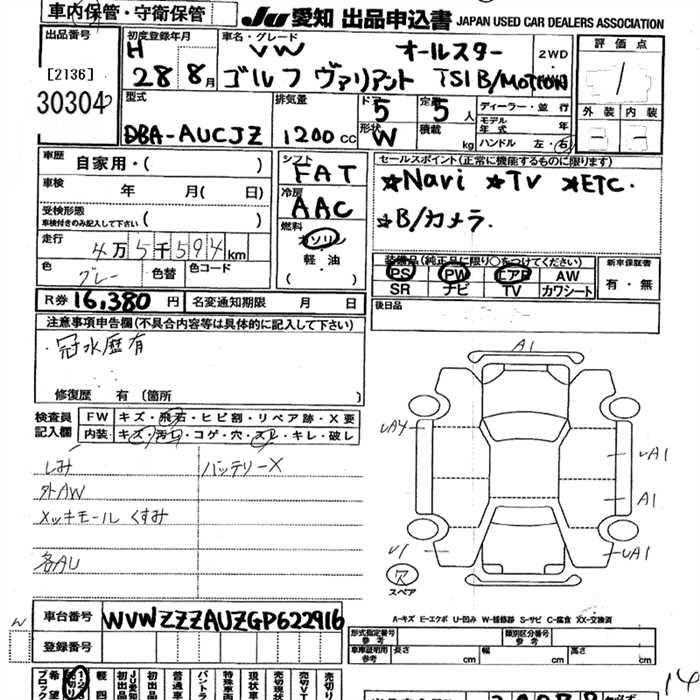 車内保管・守衛保管
JU 愛知 出品申込書 JAPAN USED CAR DEALERS ASSOCIATION
出品番号
[2136]
30304
初度登録年月
H 28年 8月
車名・グレード
VW オールスター
ゴルフ ヴァリアント TSI B/MOTION
2WD
評価点
1
外装 内装
型式
DBA-AUCJZ
排気量
1200 CC
ドア 5
形状 W
定員 5人
積載 kg
ディーラー・並行
モデル年式 年
ハンドル 左・右
車歴 自家用・( )
車検 年 月( 日)
受検形態
車検付きのみ記入して下さい ( )
走行 4万5千594km
色 グレー 色替 色コード
シフト
FAT
冷房
AAC
燃料
ガソリン
軽・油
( )
セールスポイント(正常に機能するものに限ります)
☆Navi ☆TV ☆ETC.
☆B/カメラ.
装備品(純正品に限り○をつけてください)
PS PW エアB AW
SR ナビ TV カワシート
新車保証書
有・無
後日品
R券 16,380円 名変通知期限 月 日
注意事項申告欄(不具合内容等は具体的に記入して下さい)
・冠水歴有
修復歴 有〔箇所 〕
検査員記入欄
FW キズ・飛石・ヒビ割・リペア跡・X要
内装 キズ・汚れ・コゲ・穴・スレ・キレ・破レ
しみ バッテリーX
外AW
メッキモール くすみ
各AU
A1
UA4
UA1
A1
UA1
U1
スペア
A-キズ E-エクボ U-凹み W-補修跡 S-サビ C-腐食 XX-交換済
車台番号 WVWZZZAUZGP622916
登録番号
形式指定番号 参考
類別区分番号 参考
車庫証明用 参考 長さ cm 幅 cm 高さ cm
14